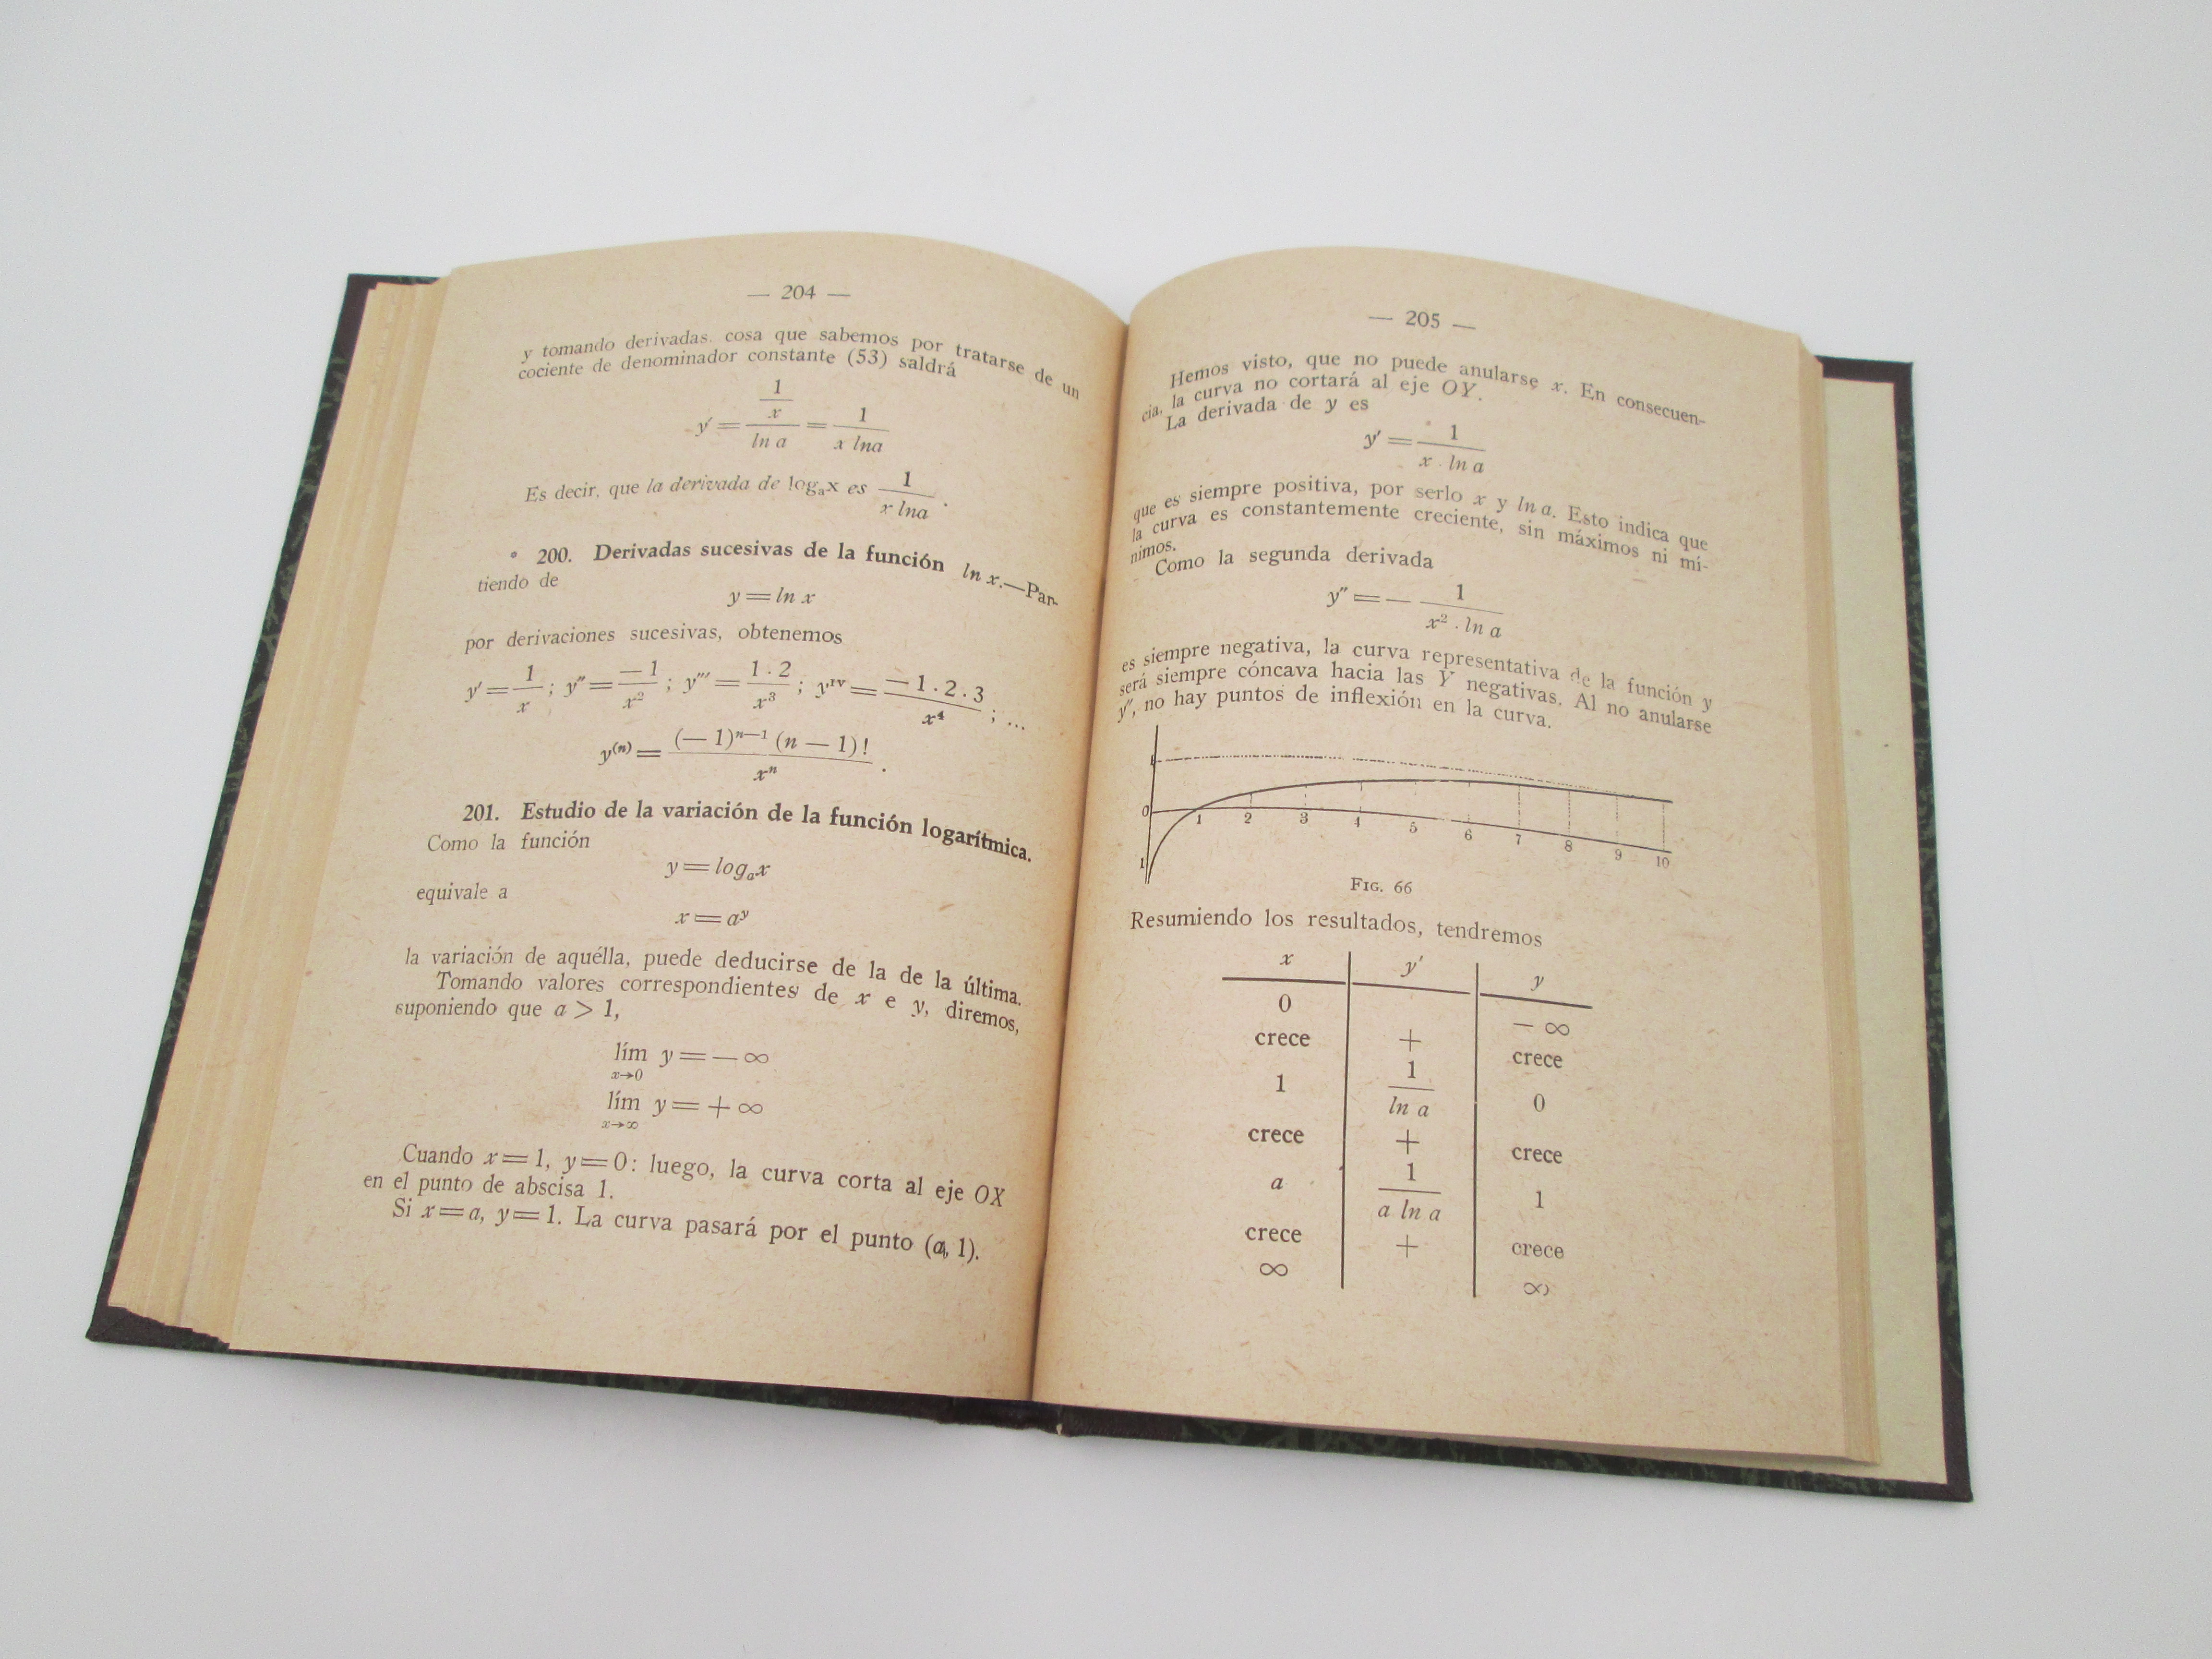 — 204 —
y tomando derivadas. cosa que sabemos por tratarse de un
cociente de denominador constante (53) saldrá
y' = (1/x)/(ln a) = 1/(x lna)
Es decir, que la derivada de logₐx es 1/(x lna) .
* 200. Derivadas sucesivas de la función ln x.—Par-
tiendo de
y = ln x
por derivaciones sucesivas, obtenemos
y' = 1/x ; y'' = −1/x² ; y''' = 1 . 2/x³ ; yᴵⱽ = −1 . 2 . 3/x⁴ ; ...
y⁽ⁿ⁾ = (−1)ⁿ⁻¹ (n − 1)!/xⁿ .
201. Estudio de la variación de la función logarítmica.
Como la función
y = logₐx
equivale a
x = aʸ
la variación de aquélla, puede deducirse de la de la última.
Tomando valores correspondientes de x e y, diremos,
suponiendo que a > 1,
lím y = − ∞
x→0
lím y = + ∞
x→∞
Cuando x = 1, y = 0: luego, la curva corta al eje OX
en el punto de abscisa 1.
Si x = a, y = 1. La curva pasará por el punto (a, 1).
— 205 —
Hemos visto, que no puede anularse x. En consecuen-
cia, la curva no cortará al eje OY.
La derivada de y es
y' = 1/(x . ln a)
que es siempre positiva, por serlo x y ln a. Esto indica que
la curva es constantemente creciente, sin máximos ni mí-
nimos.
Como la segunda derivada
y'' = − 1/(x² . ln a)
es siempre negativa, la curva representativa de la función y
será siempre cóncava hacia las Y negativas. Al no anularse
y'', no hay puntos de inflexión en la curva.
1
0 1 2 3 4 5 6 7 8 9 10
1
FIG. 66
Resumiendo los resultados, tendremos
x y' y
0 − ∞
crece + crece
1 1/(ln a) 0
crece + crece
a 1/(a ln a) 1
crece + crece
∞ ∞